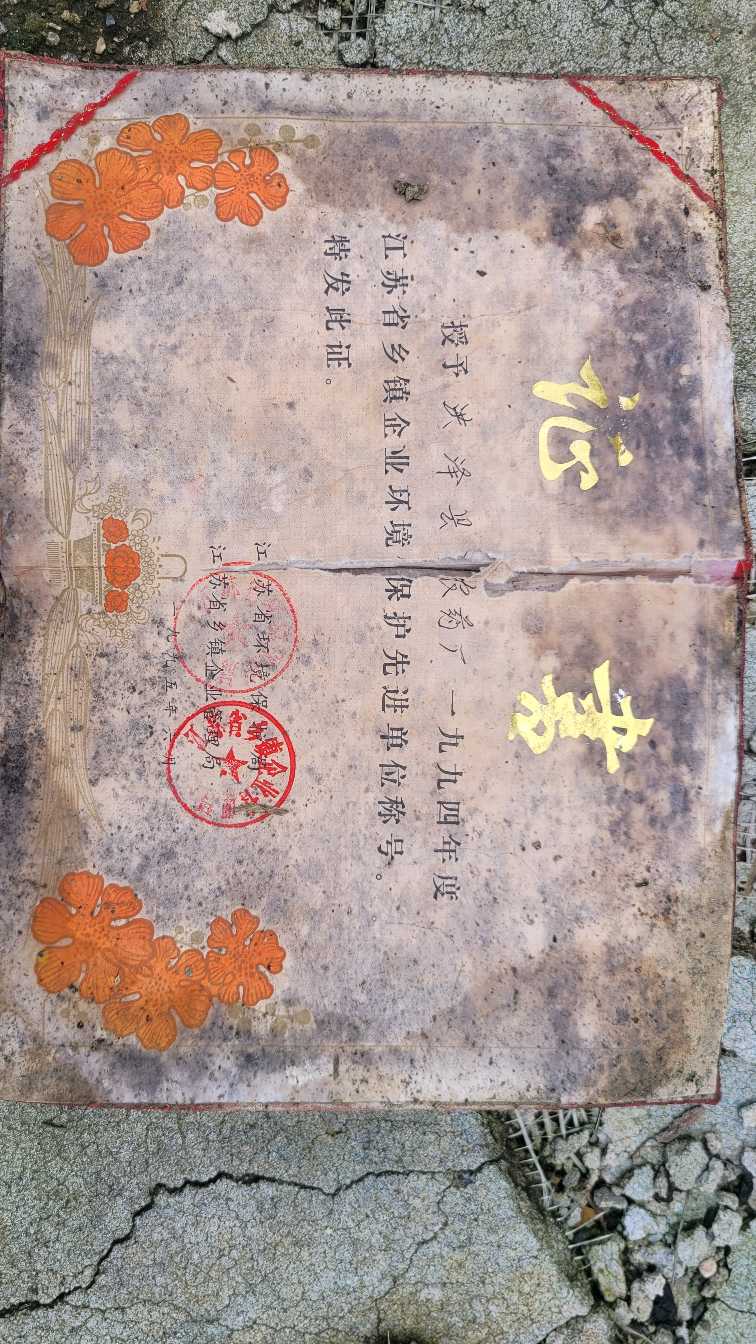 证书
授予洪泽县农药厂一九九四年度
江苏省乡镇企业环境保护先进单位称号。
特发此证。
江苏省环境保护局
江苏省乡镇企业管理局
一九九五年六月